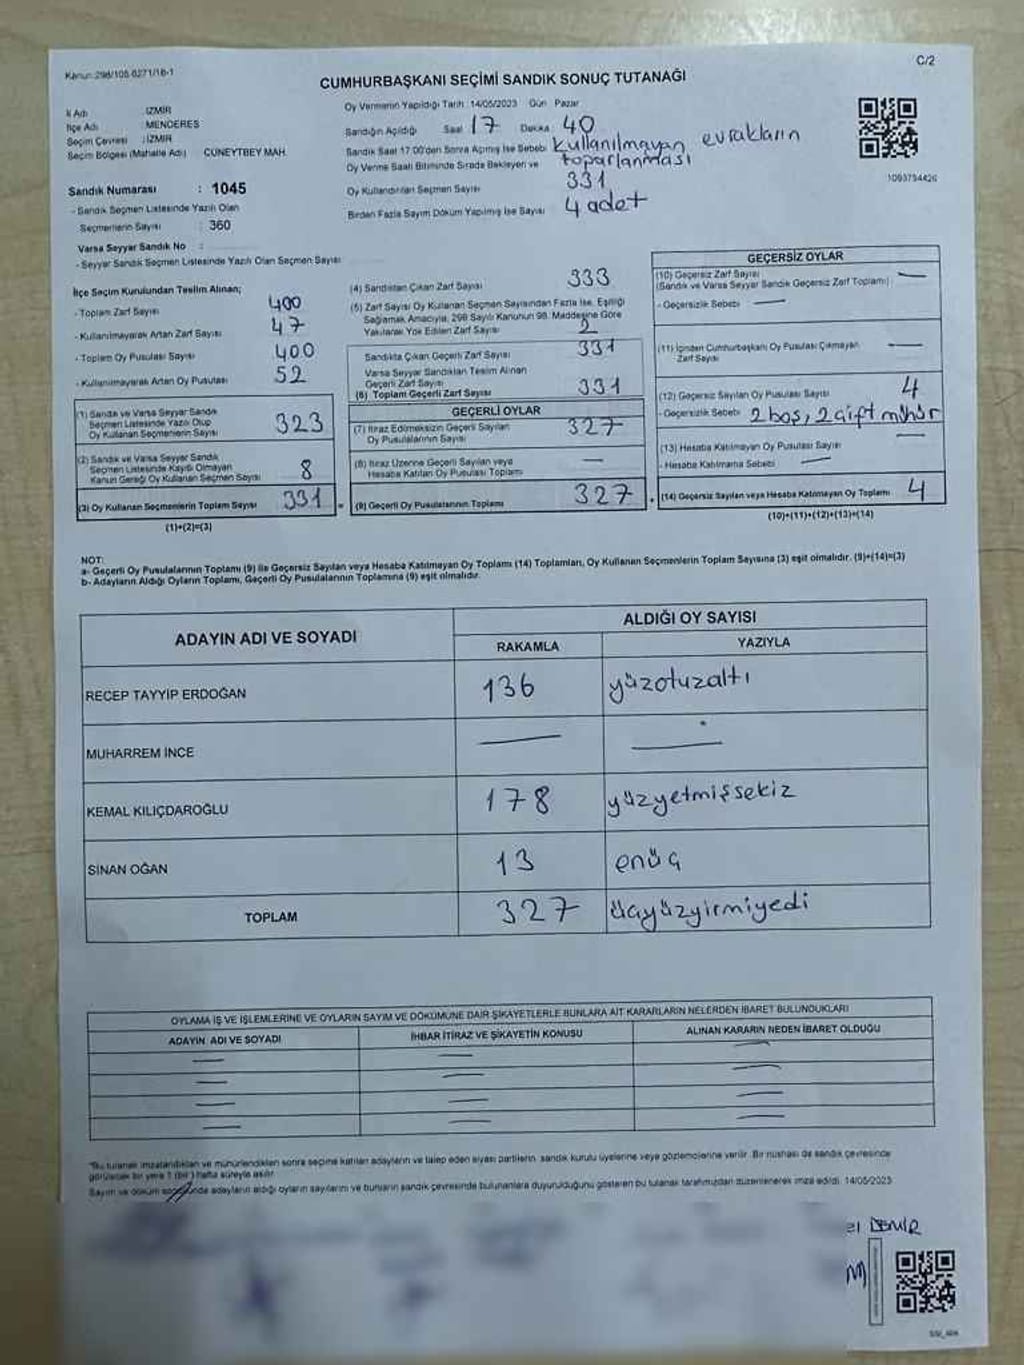 Kanun: 298/105 6271/18-1
C/2
CUMHURBAŞKANI SEÇİMİ SANDIK SONUÇ TUTANAĞI
İl Adı : İZMİR
İlçe Adı : MENDERES
Seçim Çevresi : İZMİR
Seçim Bölgesi (Mahalle Adı) CÜNEYTBEY MAH.
Sandık Numarası : 1045
- Sandık Seçmen Listesinde Yazılı Olan
Seçmenlerin Sayısı : 360
Varsa Seyyar Sandık No :
- Seyyar Sandık Seçmen Listesinde Yazılı Olan Seçmen Sayısı
Oy Vermenin Yapıldığı Tarih : 14/05/2023 Gün Pazar
Sandığın Açıldığı Saat 17 Dakika 40
Sandık Saat 17:00'den Sonra Açılmış İse Sebebi Kullanılmayan evrakların
Oy Verme Saati Bitiminde Sırada Bekleyen ve toparlanması
Oy Kullandırılan Seçmen Sayısı 331
Birden Fazla Sayım Döküm Yapılmış İse Sayısı 4 adet
1093794426
İlçe Seçim Kurulundan Teslim Alınan;
- Toplam Zarf Sayısı 400
- Kullanılmayarak Artan Zarf Sayısı 47
- Toplam Oy Pusulası Sayısı 400
- Kullanılmayarak Artan Oy Pusulası 52
(1) Sandık ve Varsa Seyyar Sandık
Seçmen Listesinde Yazılı Olup
Oy Kullanan Seçmenlerin Sayısı 323
(2) Sandık ve Varsa Seyyar Sandık
Seçmen Listesinde Kayıtlı Olmayan
Kanun Gereği Oy Kullanan Seçmen Sayısı 8
(3) Oy Kullanan Seçmenlerin Toplam Sayısı 331
(1)+(2)=(3)
(4) Sandıktan Çıkan Zarf Sayısı 333
(5) Zarf Sayısı Oy Kullanan Seçmen Sayısından Fazla İse, Eşitliği
Sağlamak Amacıyla, 298 Sayılı Kanunun 98. Maddesine Göre
Yakılarak Yok Edilen Zarf Sayısı 2
Sandıkta Çıkan Geçerli Zarf Sayısı 331
Varsa Seyyar Sandıktan Teslim Alınan
Geçerli Zarf Sayısı
(6) Toplam Geçerli Zarf Sayısı 331
GEÇERLİ OYLAR
(7) İtiraz Edilmeksizin Geçerli Sayılan
Oy Pusulalarının Sayısı 327
(8) İtiraz Üzerine Geçerli Sayılan veya
Hesaba Katılan Oy Pusulası Toplamı —
(9) Geçerli Oy Pusulalarının Toplamı 327
GEÇERSİZ OYLAR
(10) Geçersiz Zarf Sayısı —
(Sandık ve Varsa Seyyar Sandık Geçersiz Zarf Toplamı)
- Geçersizlik Sebebi —
(11) İçinden Cumhurbaşkanı Oy Pusulası Çıkmayan
Zarf Sayısı —
(12) Geçersiz Sayılan Oy Pusulası Sayısı 4
- Geçersizlik Sebebi 2 boş, 2 çift mühür
(13) Hesaba Katılmayan Oy Pusulası Sayısı —
- Hesaba Katılmama Sebebi —
(14) Geçersiz Sayılan veya Hesaba Katılmayan Oy Toplamı 4
(10)+(11)+(12)+(13)=(14)
NOT:
a- Geçerli Oy Pusulalarının Toplamı (9) ile Geçersiz Sayılan veya Hesaba Katılmayan Oy Toplamı (14) Toplamları, Oy Kullanan Seçmenlerin Toplam Sayısına (3) eşit olmalıdır. (9)+(14)=(3)
b- Adayların Aldığı Oyların Toplamı, Geçerli Oy Pusulalarının Toplamına (9) eşit olmalıdır.
ADAYIN ADI VE SOYADI
ALDIĞI OY SAYISI
RAKAMLA YAZIYLA
RECEP TAYYİP ERDOĞAN 136 yüzotuzaltı
MUHARREM İNCE — —
KEMAL KILIÇDAROĞLU 178 yüzyetmişsekiz
SİNAN OĞAN 13 onüç
TOPLAM 327 üçyüzyirmiyedi
OYLAMA İŞ VE İŞLEMLERİNE VE OYLARIN SAYIM VE DÖKÜMÜNE DAİR ŞİKAYETLERLE BUNLARA AİT KARARLARIN NELERDEN İBARET BULUNDUKLARI
ADAYIN ADI VE SOYADI İHBAR İTİRAZ VE ŞİKAYETİN KONUSU ALINAN KARARIN NEDEN İBARET OLDUĞU
— — —
— — —
— — —
— — —
"Bu tutanak imzalandıktan ve mühürlendikten sonra seçime katılan adayların ve talep eden siyasi partilerin, sandık kurulu üyelerine veya gözlemcilerine verilir. Bir nüshası da sandık çevresinde
görülecek bir yere 1 (bir) hafta süreyle asılır.
Sayım ve döküm adayların aldığı oyların sayılarını ve bunların sandık çevresinde bulunanlara duyurulduğunu gösteren bu tutanak tarafımızdan düzenlenerek imza edildi. 14/05/2023
el DEMİR